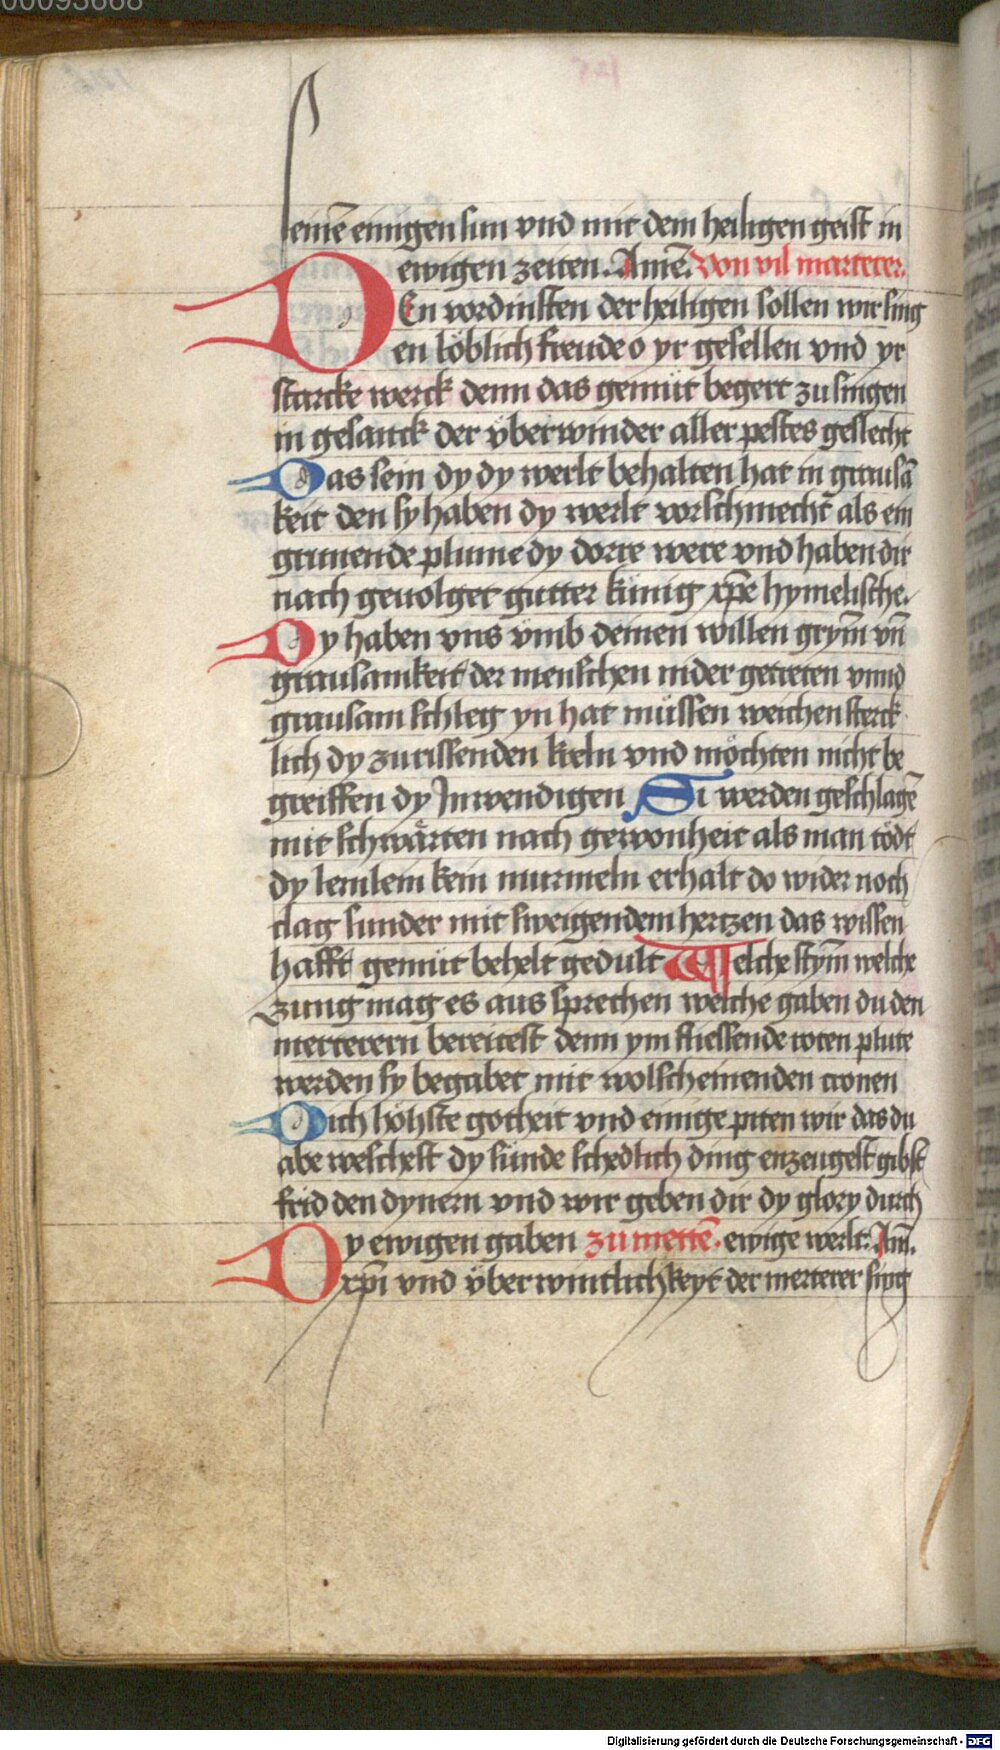 00093668
seinē einigen sun vnd mit dem heiligen geist in
ewigen zeiten. Amē. Von vil marterer.
DEn vordinsten der heiligen sollen wir sing
en löblich freude o yr gesellen vnd yr
starcke werck denn das gemüt begert zu singen
in gesanck der überwinder aller pestes geslecht
Das sein dy dy werlt behalten hat in grausā
keit den sy haben dy werlt vorschmecht als ein
grunende plume dy dorre were vnd haben dir
nach geuolget gutter künig xpē hymelische.
Dy haben vns vmb deinen willen grȳm vn̄
grausamkeit der menschen nider getreten vnnd
grausam schleg yn hat müssen weichen sterck
lich dy zurissenden kreln vnd möchten nicht be
greiffen dy Inwendigen Si werden geschlagē
mit schwärten nach gewonheit als man tödt
dy lemlein kein murmeln erhalt do wider noch
clag sunder mit sweigendem hertzen das wissen
hafft gemüt behelt gedult Welche stȳm welche
zung mag es aus sprechen welche gaben du den
merterern bereitest denn ym fliessende roten plute
werden sy begabet mit wolscheinenden cronen
Dich höhste gotheit vnd einige piten wir das du
abe weschest dy sünde schedlich ding enzeugest gibst
frid den dynern vnd wir geben dir dy glory durch
Dy ewigen gaben zu mettē. ewige werlt. Am̄.
xp̄i vnd überwintlichkeyt der merterer sing
Digitalisierung gefördert durch die Deutsche Forschungsgemeinschaft - DFG